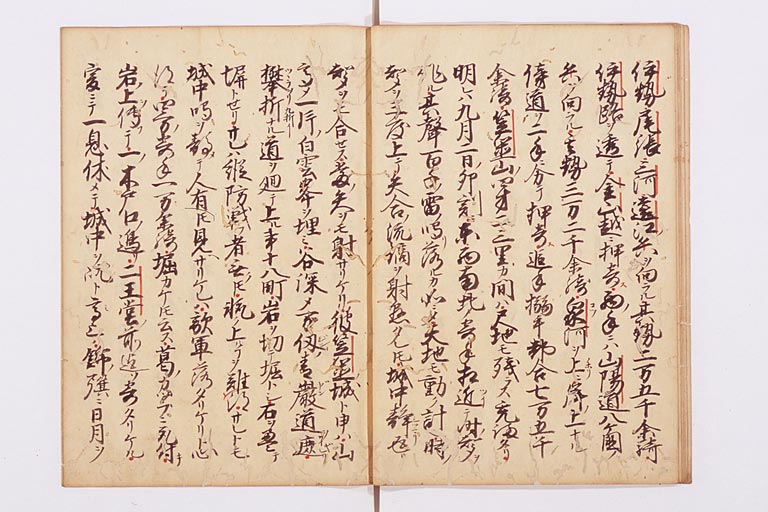 伊勢尾張三河遠江兵ヲ向ラル其勢二万五千余騎
伊勢路ヲ経テ金剛越ヨリ押寄西ノ手ニハ山陽道八ケ国ノ
兵ヲ向ラル其勢三万二千余騎梨間ノ上ノ岸ニ上ナル
傍道ヲ二手ニ分テ押寄追手搦手都合七万五千
余騎笠置山ノ四方二三里カ間ハ尺地モ残ラス充満タリ
明レハ九月二日卯刻ニ東西南北ノ寄手相近テ時ヲ作ル
其聲百千ノ雷ノ鳴落ルカ如メ天地モ動計時ノ
聲ヲ三度上テ矢合ノ流鏑ヲ射懸タレ𪜈城中静返テ
聲ヲモ合セス當ノ矢ヲモ射サリケリ彼笠置城ト申ハ山
高メ一片白雲峯ヲ埋ミ谷深メ万仞青巌道遮
攀折ナル道ヲ廻テ上ル事十八町岩ヲ切テ堀トシ石ヲ畳テ
塀トセリサレハ縦防戦フ者無𪜈輙ク上ヿヲ難得サレトモ
城中鳴ヲ静テ人有𪜈見ヘサリケレハ敵軍落タリケリト心
得テ四方ノ寄手一万余騎堀カケ𪜈云ス葛ノカツラニ取付
岩上傳テ一ノ木戸口過リ二王堂前近ソ寄タリケル
爰ニテ一息休メテ城中ヲ吃ト向上レハ錦旗ニ日月ヲ